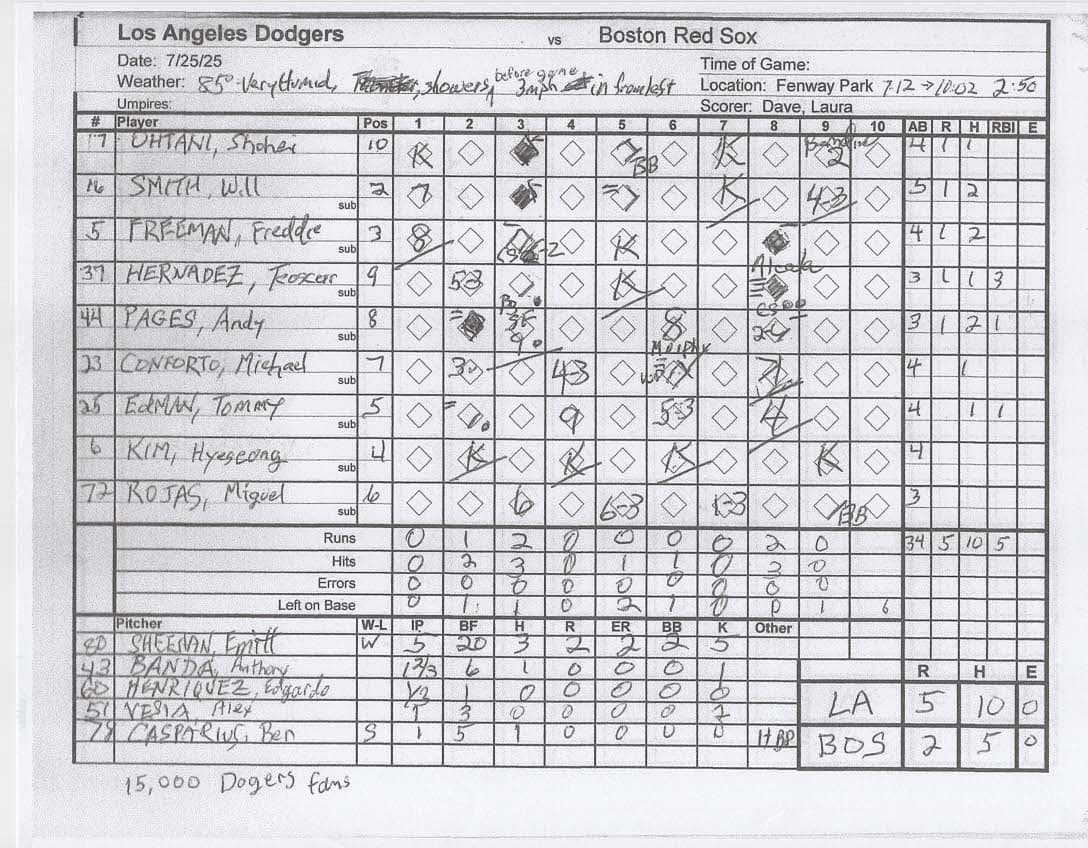 Los Angeles Dodgers vs Boston Red Sox
Date: 7/25/25 Time of Game:
Weather: 85° very Humid, showers before game, 3mph in from left Location: Fenway Park 7:12 → 10:02 2:50
Umpires: Scorer: Dave, Laura
# Player Pos 1 2 3 4 5 6 7 8 9 10 AB R H RBI E
17 OHTANI, Shohei 10 K 7 BB K 2 4 1 1
16 SMITH, Will 2 7 7 K 4-3 5 1 2
sub
5 FREEMAN, Freddie 3 8 K 4 1 2
sub
Alcala
37 HERNADEZ, Teoscar 9 5-3 K 3 1 1 3
sub
44 PAGES, Andy 8 SF 9 8 CS 2-4 3 1 2 1
sub
Murphy
23 CONFORTO, Michael 7 3 4-3 WP 7 4 1
sub
25 EDMAN, TOMMY 5 9 5-3 4 4 1 1
sub
6 KIM, Hyeseong 4 K K K K 4
sub
72 ROJAS, Miguel 6 6 6-3 1-3 BB 3
sub
Runs 0 1 2 0 0 0 0 2 0 34 5 10 5
Hits 0 2 3 0 1 1 0 3 0
Errors 0 0 0 0 0 0 0 0 0
Left on Base 0 1 1 0 2 1 0 0 1 6
Pitcher W-L IP BF H R ER BB K Other
80 SHEEHAN, Emitt W 5 20 3 2 2 2 5
43 BANDA, Anthony 1 2/3 6 1 0 0 0 1 R H E
60 HENRIQUEZ, Edgardo 1/3 1 0 0 0 0 0
51 VESIA, Alex 1 3 0 0 0 0 2 LA 5 10 0
78 CASPARIUS, Ben S 1 5 1 0 0 0 0 HBP BOS 2 5 0
15,000 Dogers fans